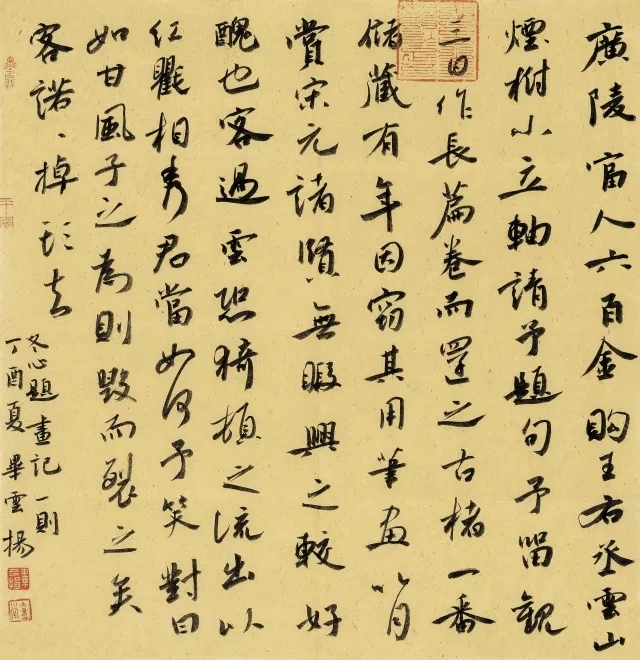 廣陵富人六百金購王右丞雲山
煙樹小立軸請予題句予留觀
三日作長篇卷而還之古楮一番
儲藏有年因竊其用筆畫以自
賞宋元諸賢無暇興之較好
醜也客過雲恐猗頓之流出以
紅氍相秀君當如何予笑對曰
如甘風子之為則毀而裂之矣
客諾、掉頭去
冬心題畫記一則
丁酉夏畢雲揚